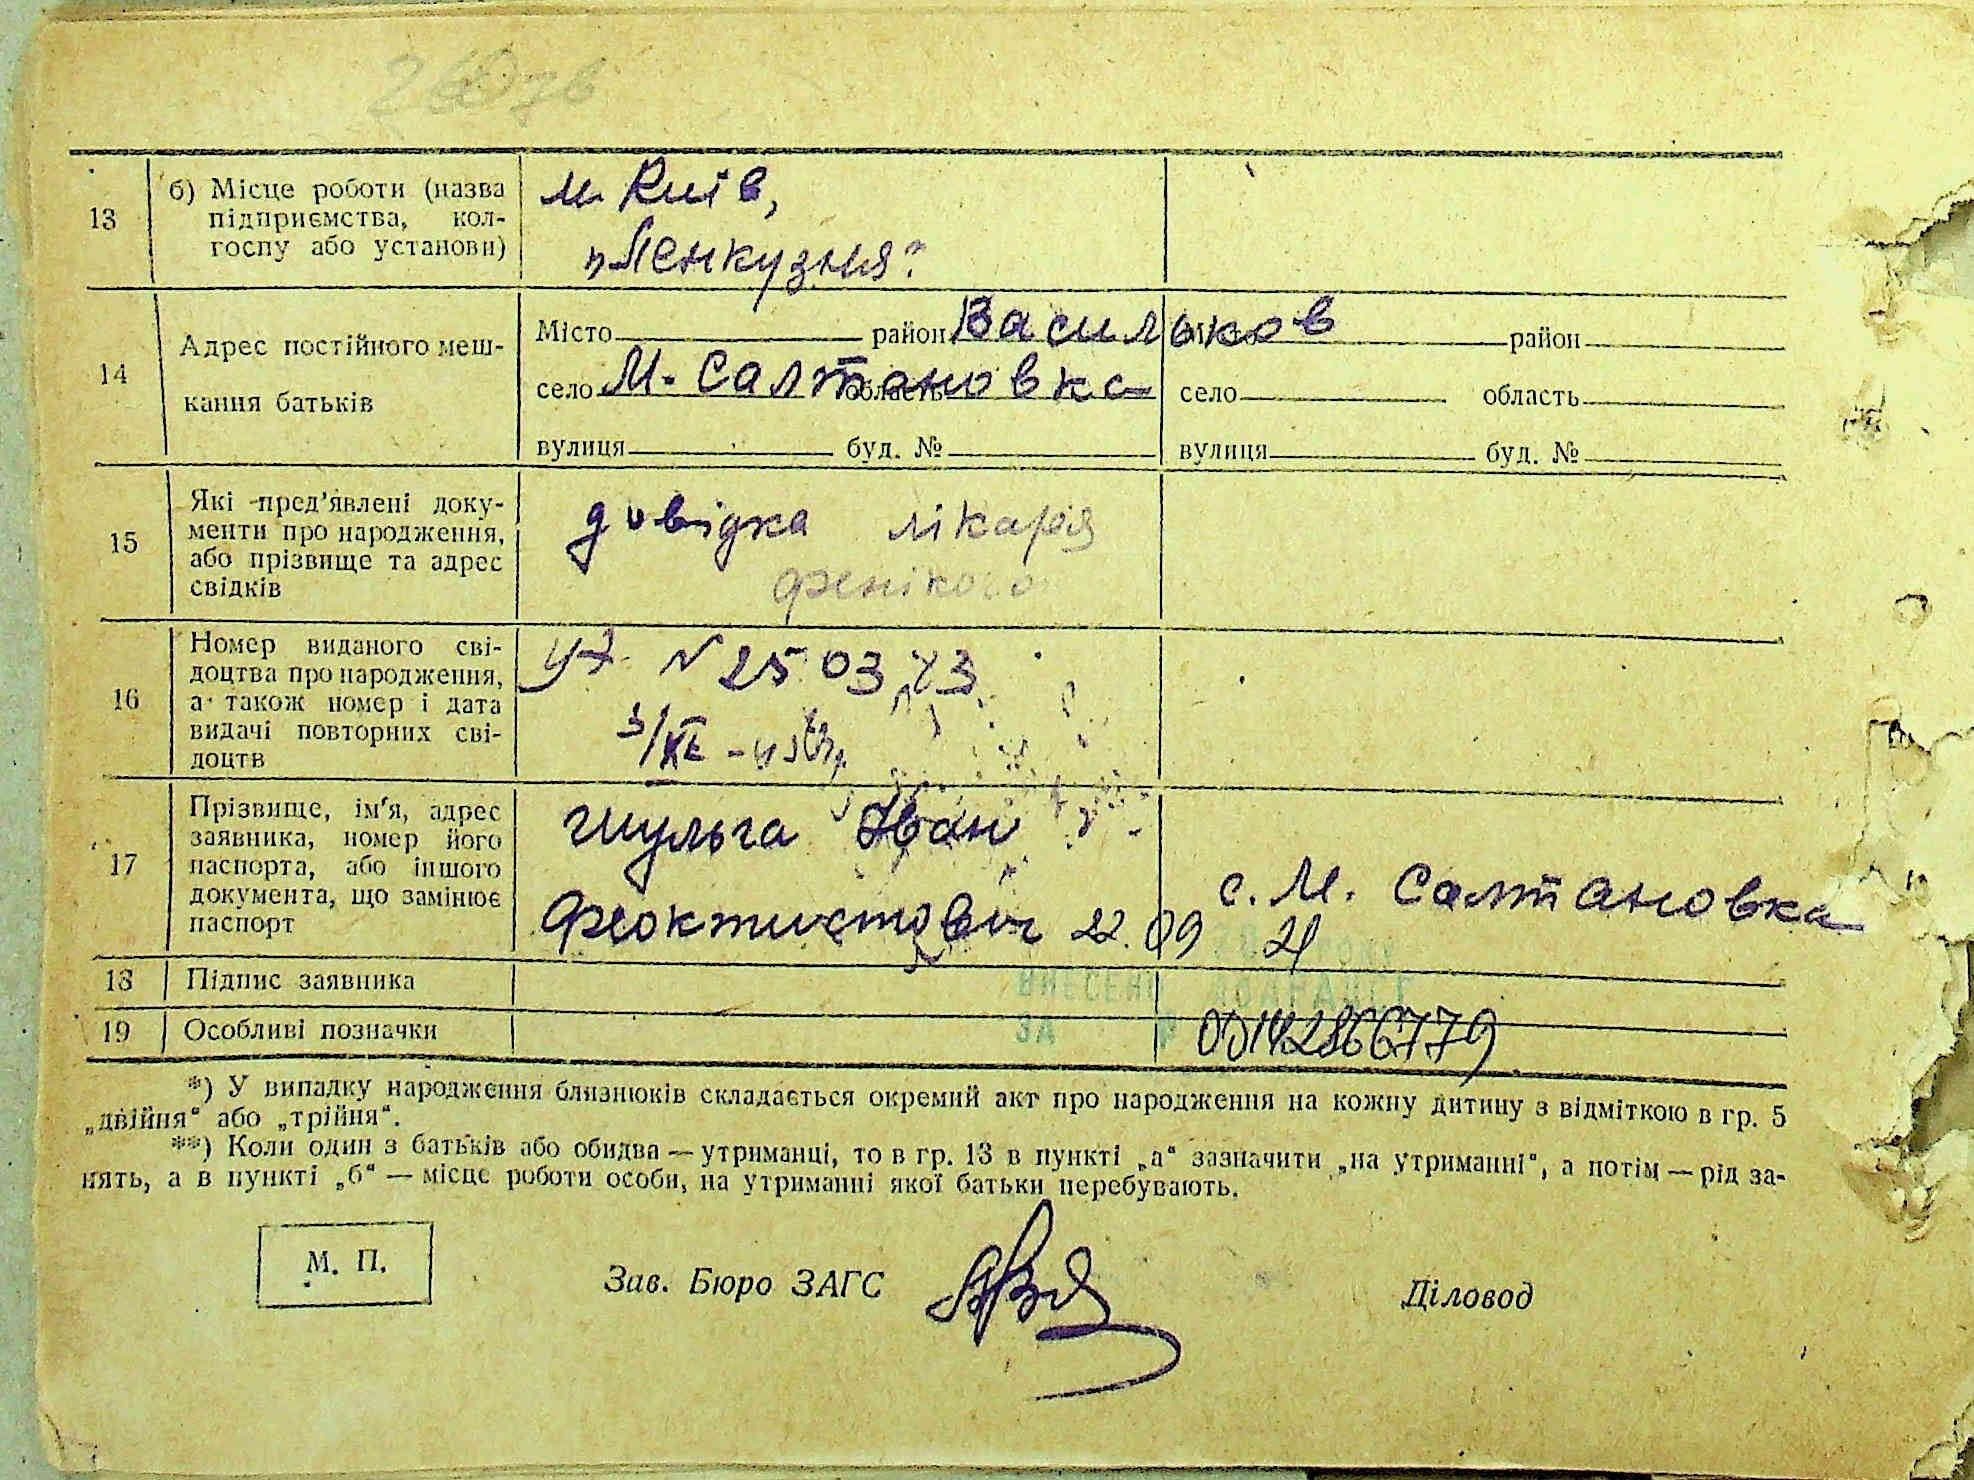 13
б) Місце роботи (назва
підприємства, кол-
госпу або установи)
м. Київ,
„Ленкузня“
14
Адрес постійного меш-
кання батьків
Місто район Васильков район
село М. Салтановка область село область
вулиця буд. № вулиця буд. №
15
Які пред'явлені доку-
менти про народження,
або прізвище та адрес
свідків
довідка лікаря
16
Номер виданого сві-
доцтва про народження,
а також номер і дата
видачі повторних сві-
доцтв
N 25 03
17
Прізвище, ім'я, адрес
заявника, номер його
паспорта, або іншого
документа, що замінює
паспорт
Шульга Іван
Феоктистович 22.09 21
с. М. Салтановка
18 Підпис заявника
ВНЕСЕНО ДО ДРАЦСГ
19 Особливі позначки
ЗА № 00142866779
*) У випадку народження близнюків складається окремий акт про народження на кожну дитину з відміткою в гр. 5
„двійня“ або „трійня“.
**) Коли один з батьків або обидва — утриманці, то в гр. 13 в пункті „а“ зазначити „на утриманні“, а потім — рід за-
нять, а в пункті „б“ — місце роботи особи, на утриманні якої батьки перебувають.
М. П.
Зав. Бюро ЗАГС
Діловод